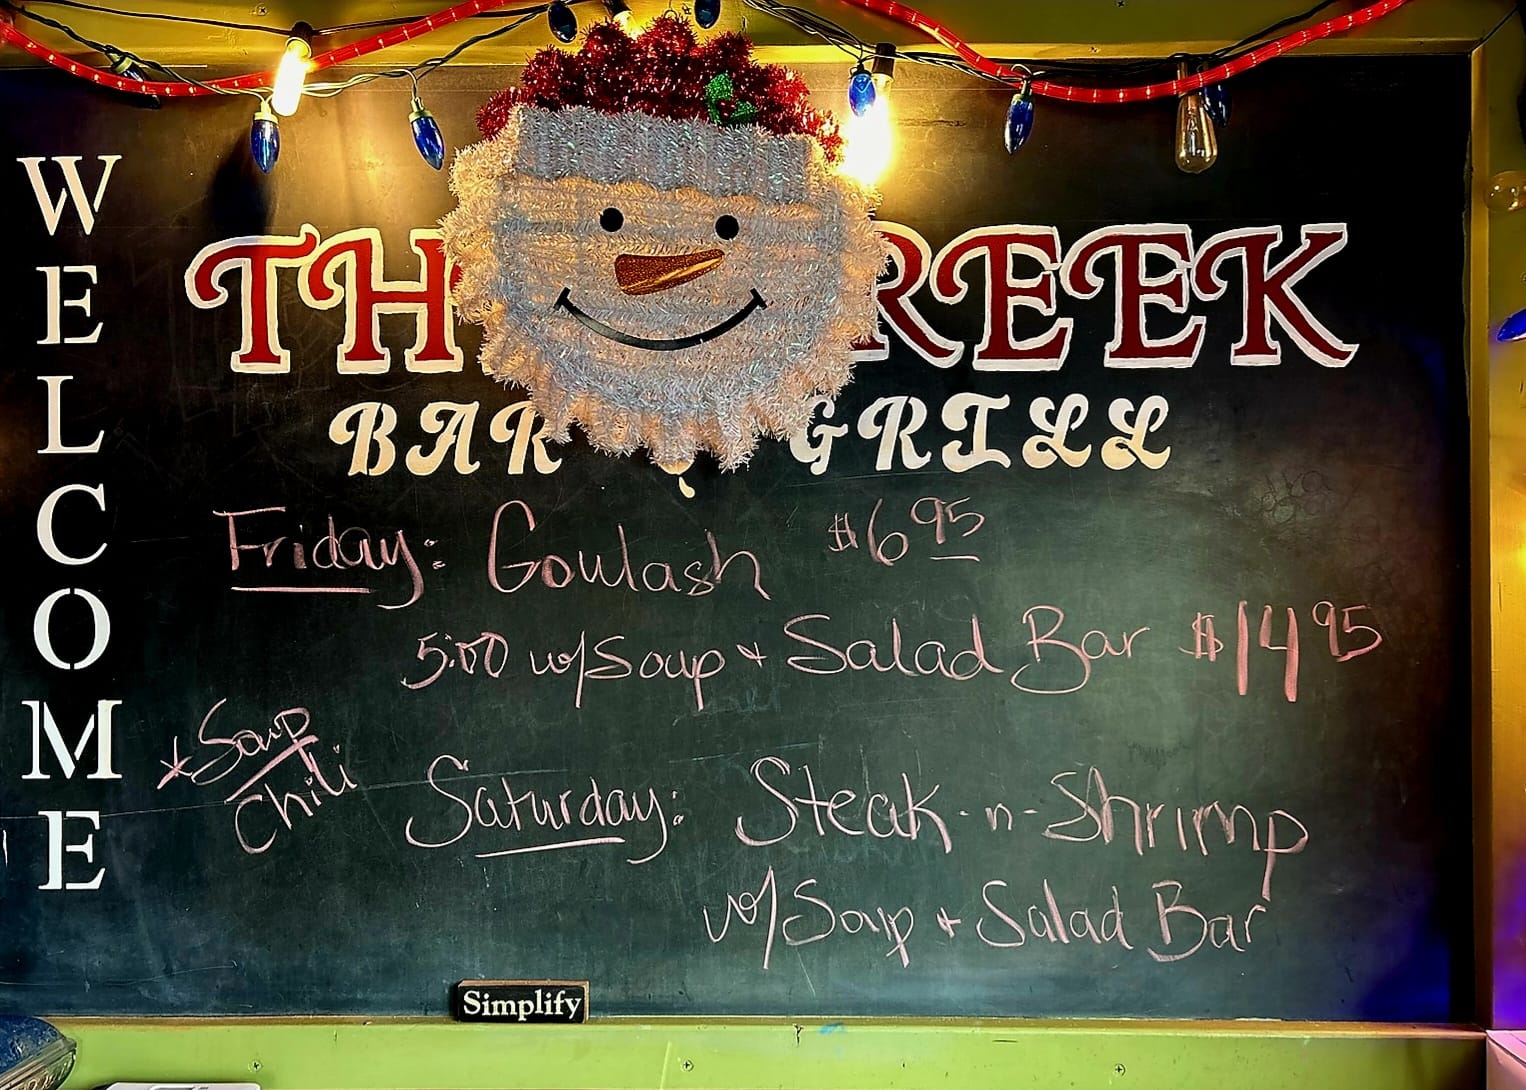 WELCOME
TH REEK
BAR GRILL
Friday: Goulash $6 95
5:00 w/Soup + Salad Bar $14 95
*Soup
Chili
Saturday: Steak-n-Shrimp
w/Soup + Salad Bar
Simplify